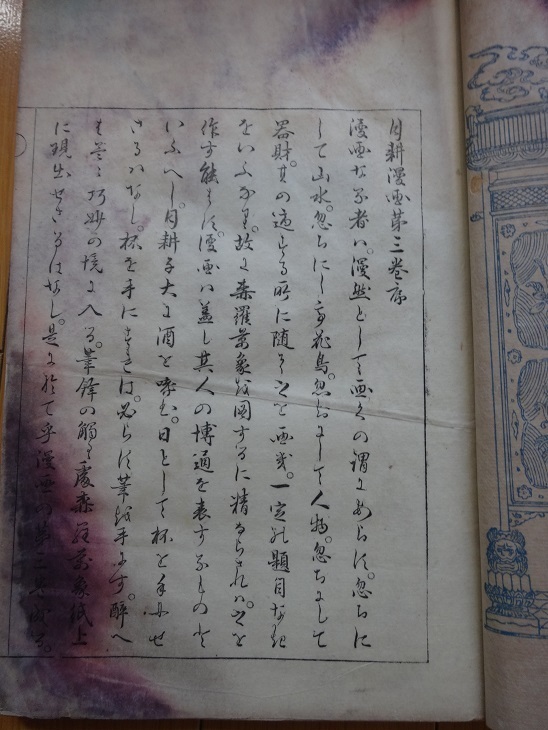 月耕漫画第三巻序
漫画なる者は。漫然として画くの謂にあらす。忽ちに
して山水。忽ちにして花鳥。忽ちにして人物。忽ちにして
器財。其の適する所に随ひ之を画き。一定の題目なき
をいふなり。故に森羅万象を図するに精ならされは。之を
作す能はす。漫画は蓋し其人の博通を表するものと
いふへし。月耕子大に酒を嗜む。日として杯を手にせ
さるはなし。杯を手にすれは。必らす筆を手にす。酔へ
は益々巧妙の境に入る。筆鋒の触るゝ処森羅万象紙上
に現出せさるはなし。是に於て乎漫画の第三集成る。